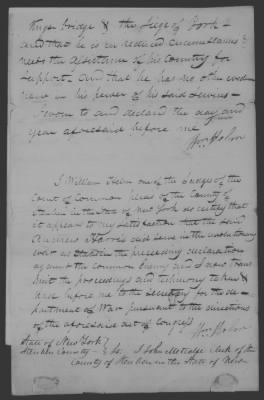 Kings bridge & the Seige of York -
and that he is in reduced circumstances &
needs the assistance of his Country for
support and that he has no other evidence
now in his power of his said services -
Sworn to and declared the day and
year aforesaid before me
Wm Helm
I William Helm one of the Judges of the
Court of Common Pleas of the County of
Steuben in the State of New York do certify that
it appears to my satisfaction that the said
Harris did serve in the revolutionary
war as stated in the preceding declaration
against the common enemy and I now trans
mit the proceedings and testimony taken &
had before me to the Secretary for the de
partment of War pursuant to the directions
of the aforesaid act of Congress
Wm Helm
State of New York
Steuben County ss. I John Metcalfe Clerk of the
County of Steuben in the State of New